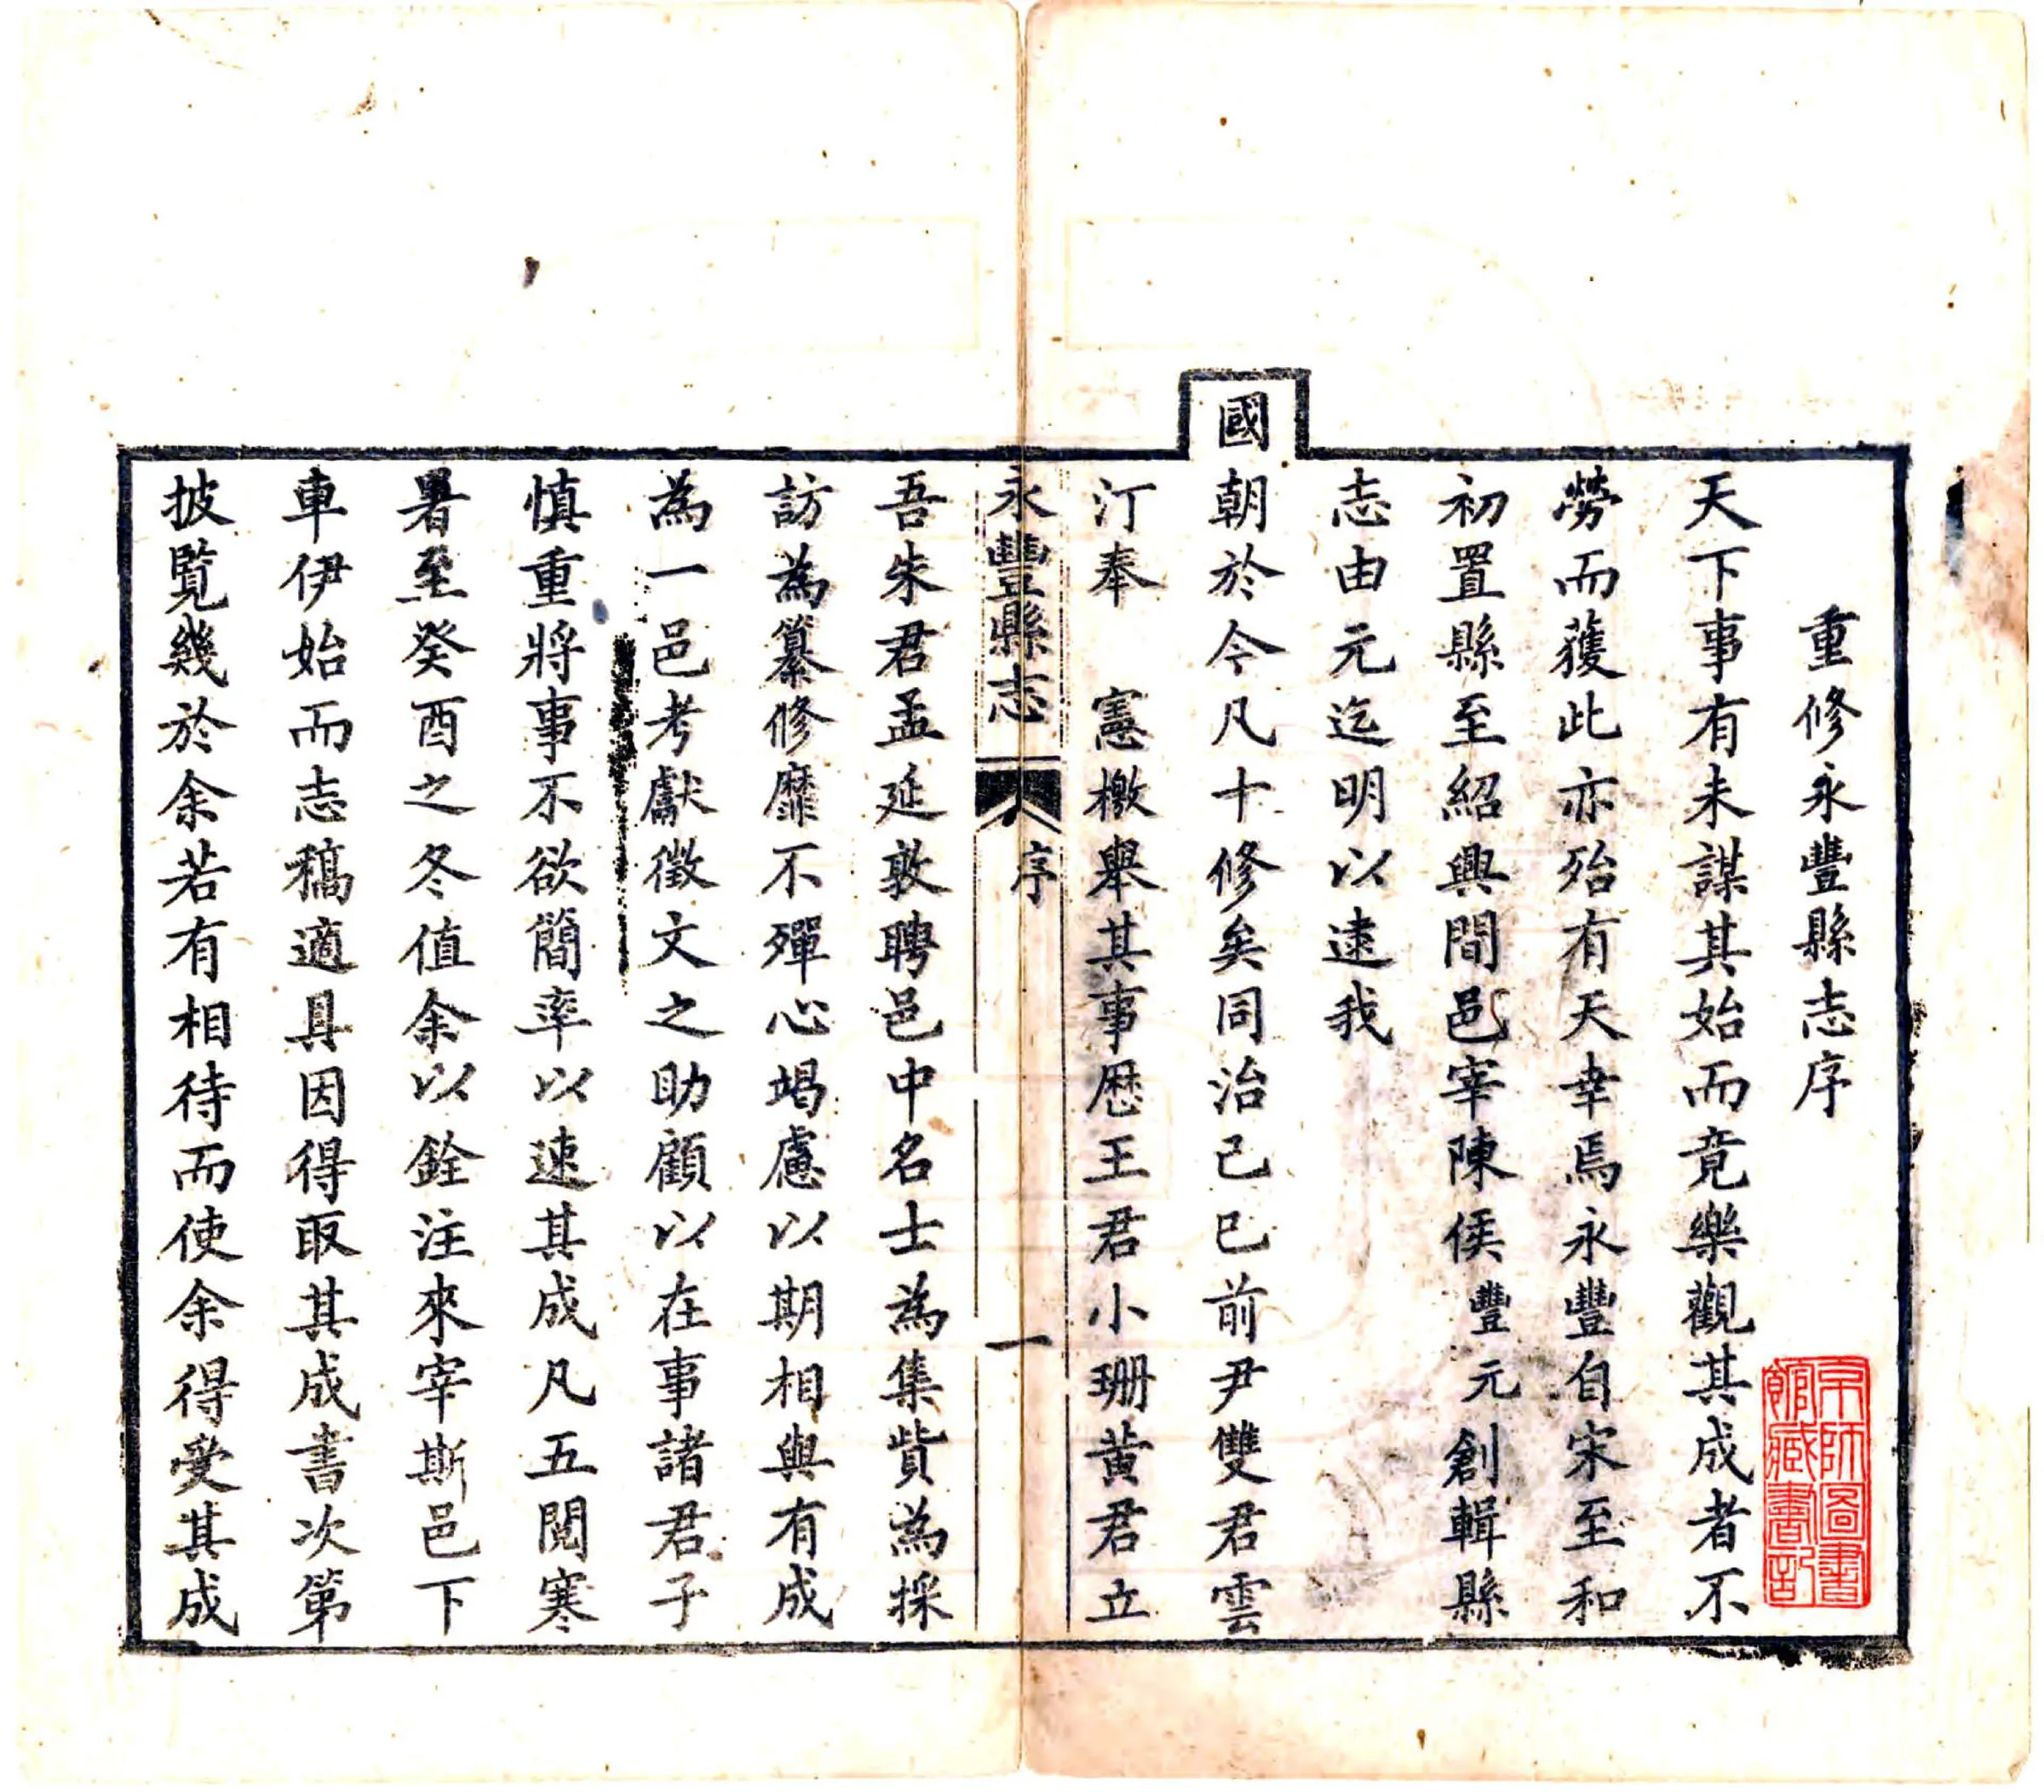 重修永豐縣志序
天下事有未謀其始而竟樂觀其成者不
勞而獲此亦殆有天幸焉永豐自宋至和
初置縣至紹興間邑宰陳侯豐元創輯縣
志由元迄明以逮我
國朝於今凡十修矣同治己巳前尹雙君雲
汀奉 憲檄舉其事歷王君小珊黃君立
永豐縣志 序 一
吾朱君孟延敦聘邑中名士為集貲為採
訪為纂修靡不殫心竭慮以期相與有成
為一邑考獻徵文之助顧以在事諸君子
慎重將事不欲簡率以速其成凡五閱寒
暑至癸酉之冬值余以銓注來宰斯邑下
車伊始而志稿適具因得取其成書次第
披覽幾於余若有相待而使余得受其成
京師圖書
館藏書記